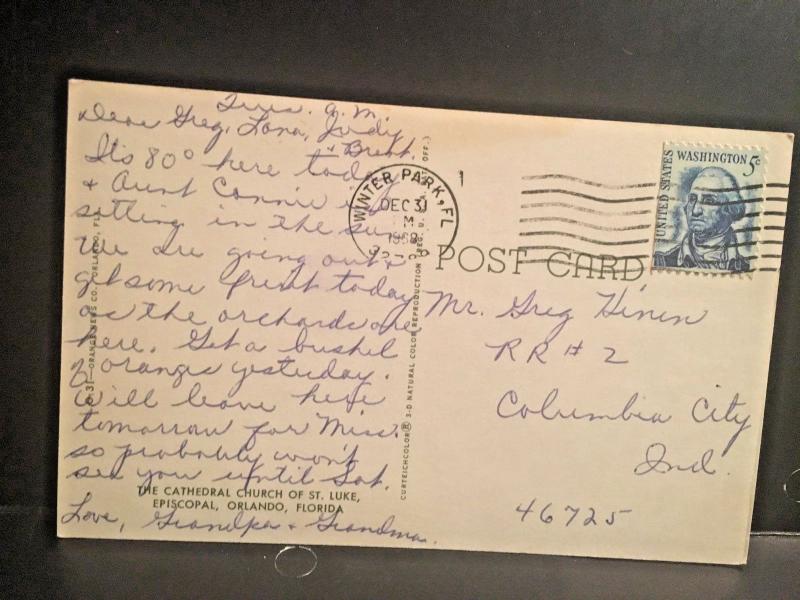 Tues. a.m.
Dear Greg, Lona, Judy
+ Brent.
It's 80° here today
+ Aunt Connie is
sitting in the sun.
We are going out +
get some fruit today
as the orchards are
here. Got a bushel
of oranges yesterday.
Will leave here
tomorrow for Miss.
so probably won't
see you until Sat.
Love, Grandpa + Grandma.
THE CATHEDRAL CHURCH OF ST. LUKE,
EPISCOPAL, ORLANDO, FLORIDA
ORANGE NEWS CO., ORLANDO, FLA.
CURTEICHCOLOR® 3-D NATURAL COLOR REPRODUCTION (REG. U.S. OFF.)
WINTER PARK, FL
DEC 31
M
1968
POST CARD
UNITED STATES
WASHINGTON 5c
Mr. Greg Hinen
RR # 2
Columbia City
Ind.
46725